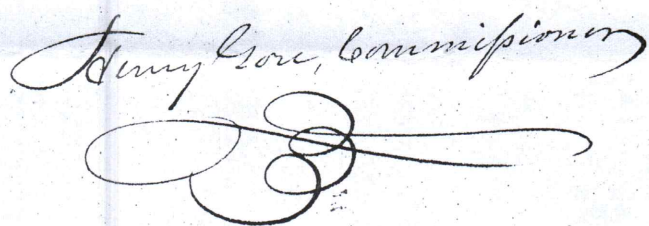 Henry Gore, Commissioner